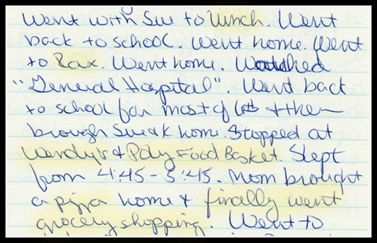 Went with Sue to lunch. Went
back to school. Went home. Went
to Rax. Went home. Watched
"General Hospital". Went back
to school for most of & then
brough Sue home. Stopped at
Wendy's & Poly Food Basket. Slept
from 4:45 - 5:45. Mom brought
a pizza home & finally went
grocery shopping. Went to